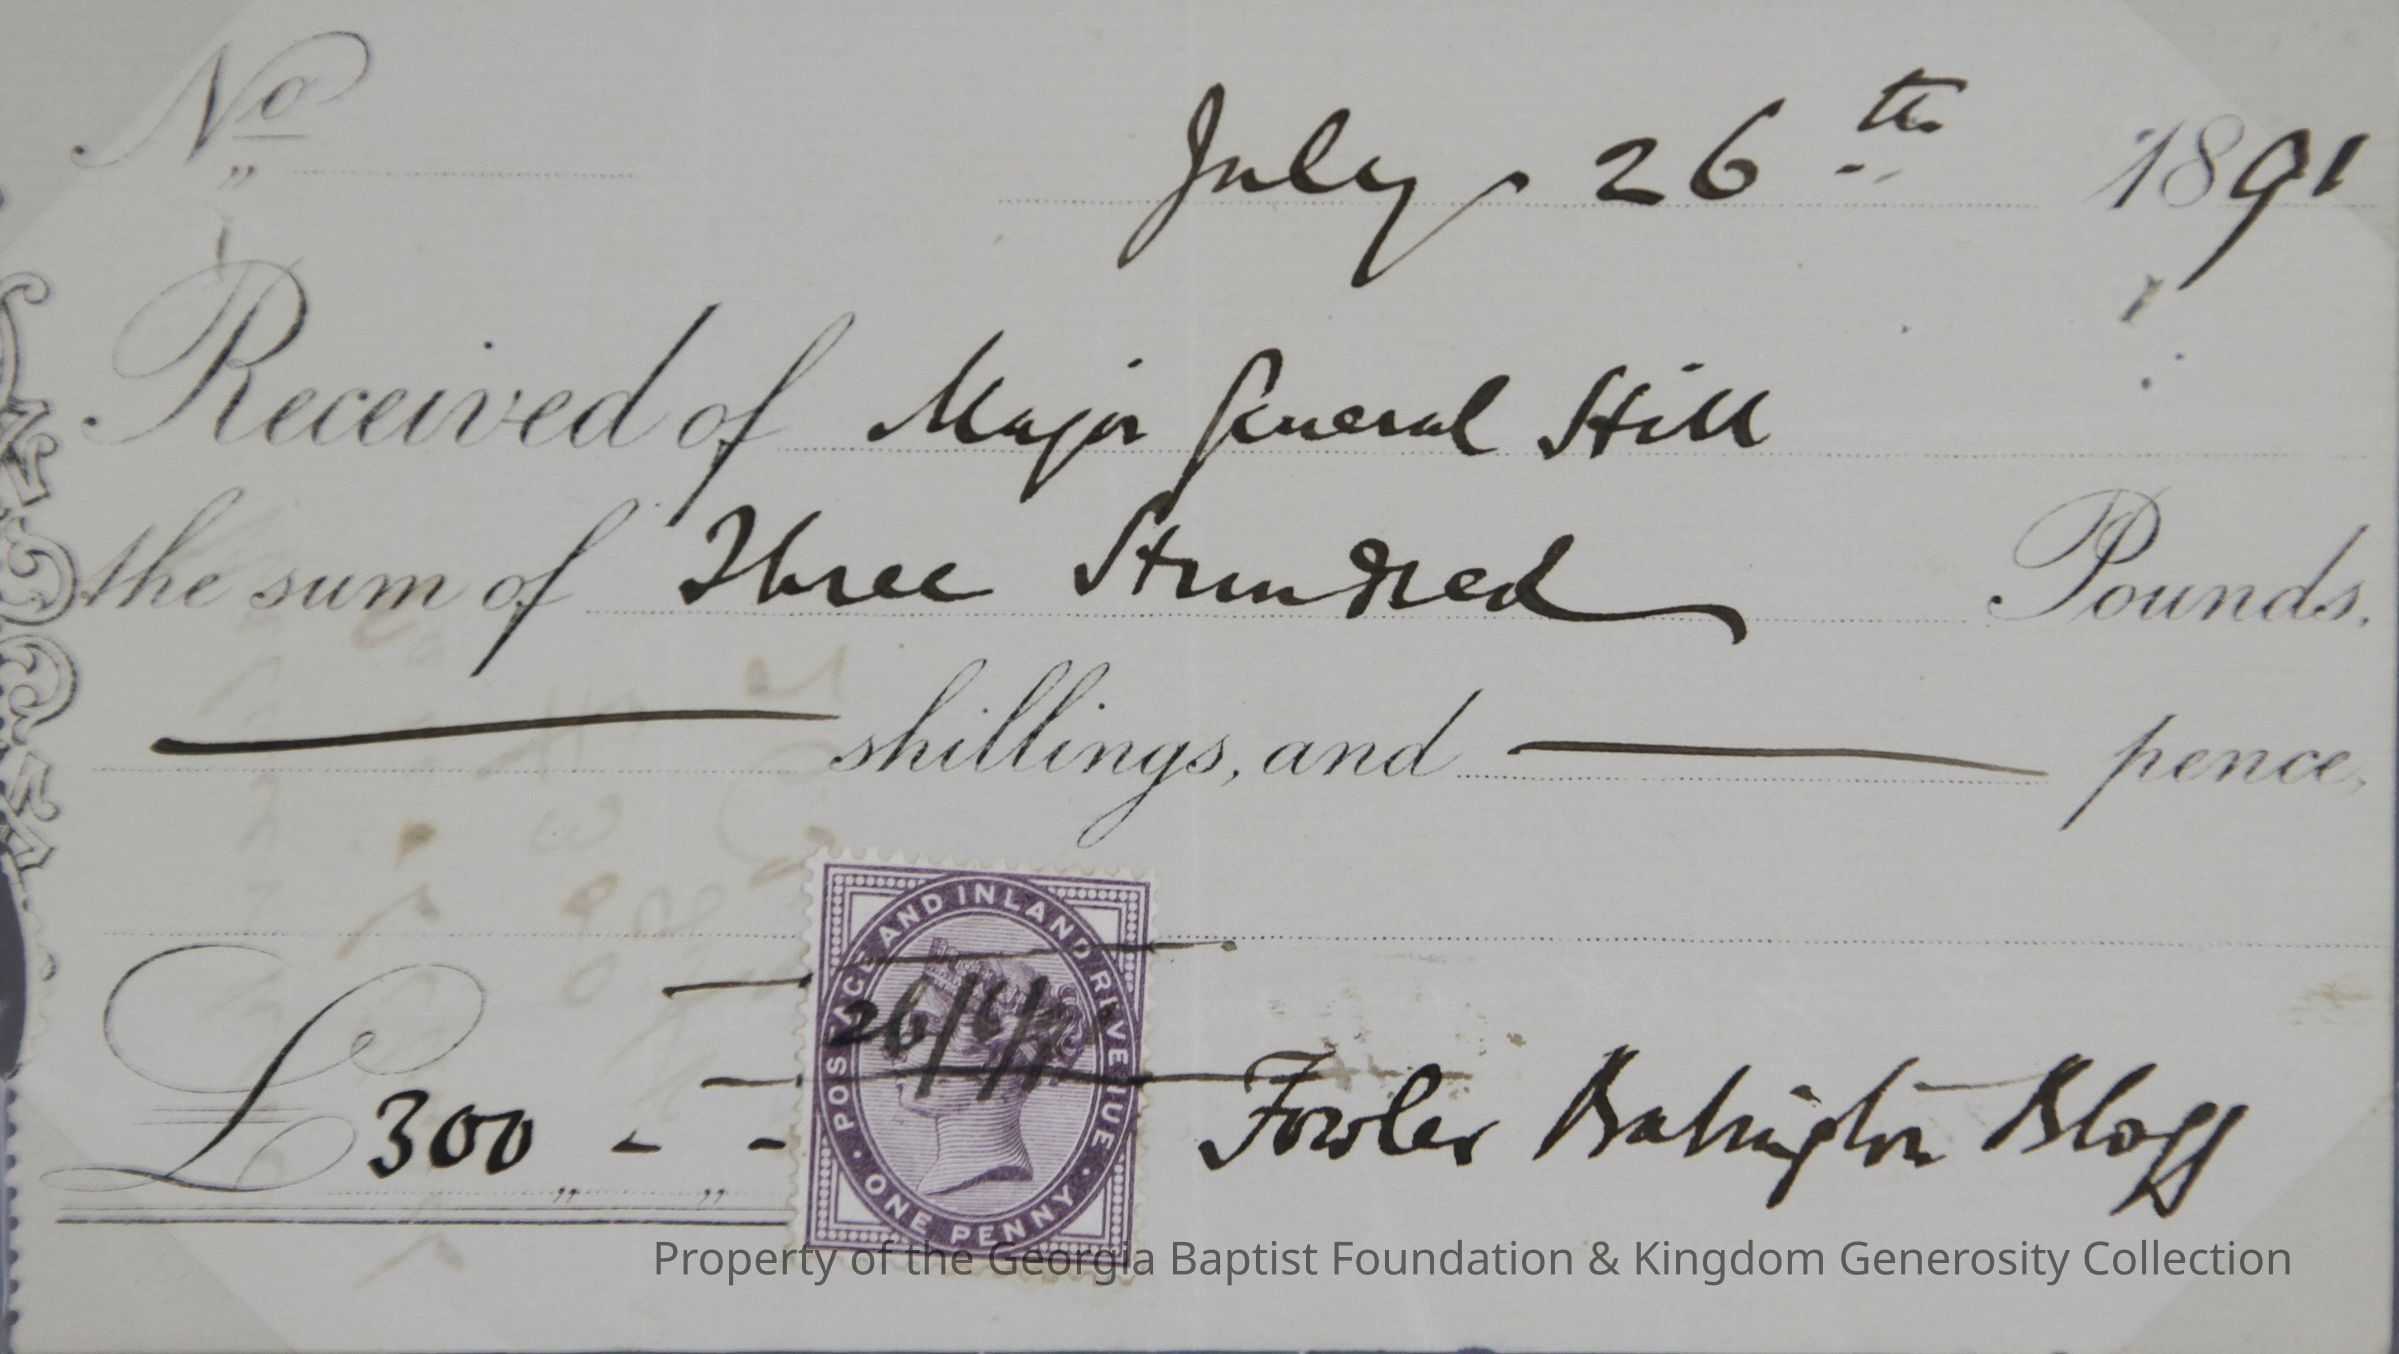 No
July 26th 1891
Received of Major General Hill
the sum of Three Hundred Pounds.
shillings, and pence,
POSTAGE AND INLAND REVENUE
ONE PENNY
£300 - -
Fowler Babington Blogg
Property of the Georgia Baptist Foundation & Kingdom Generosity Collection